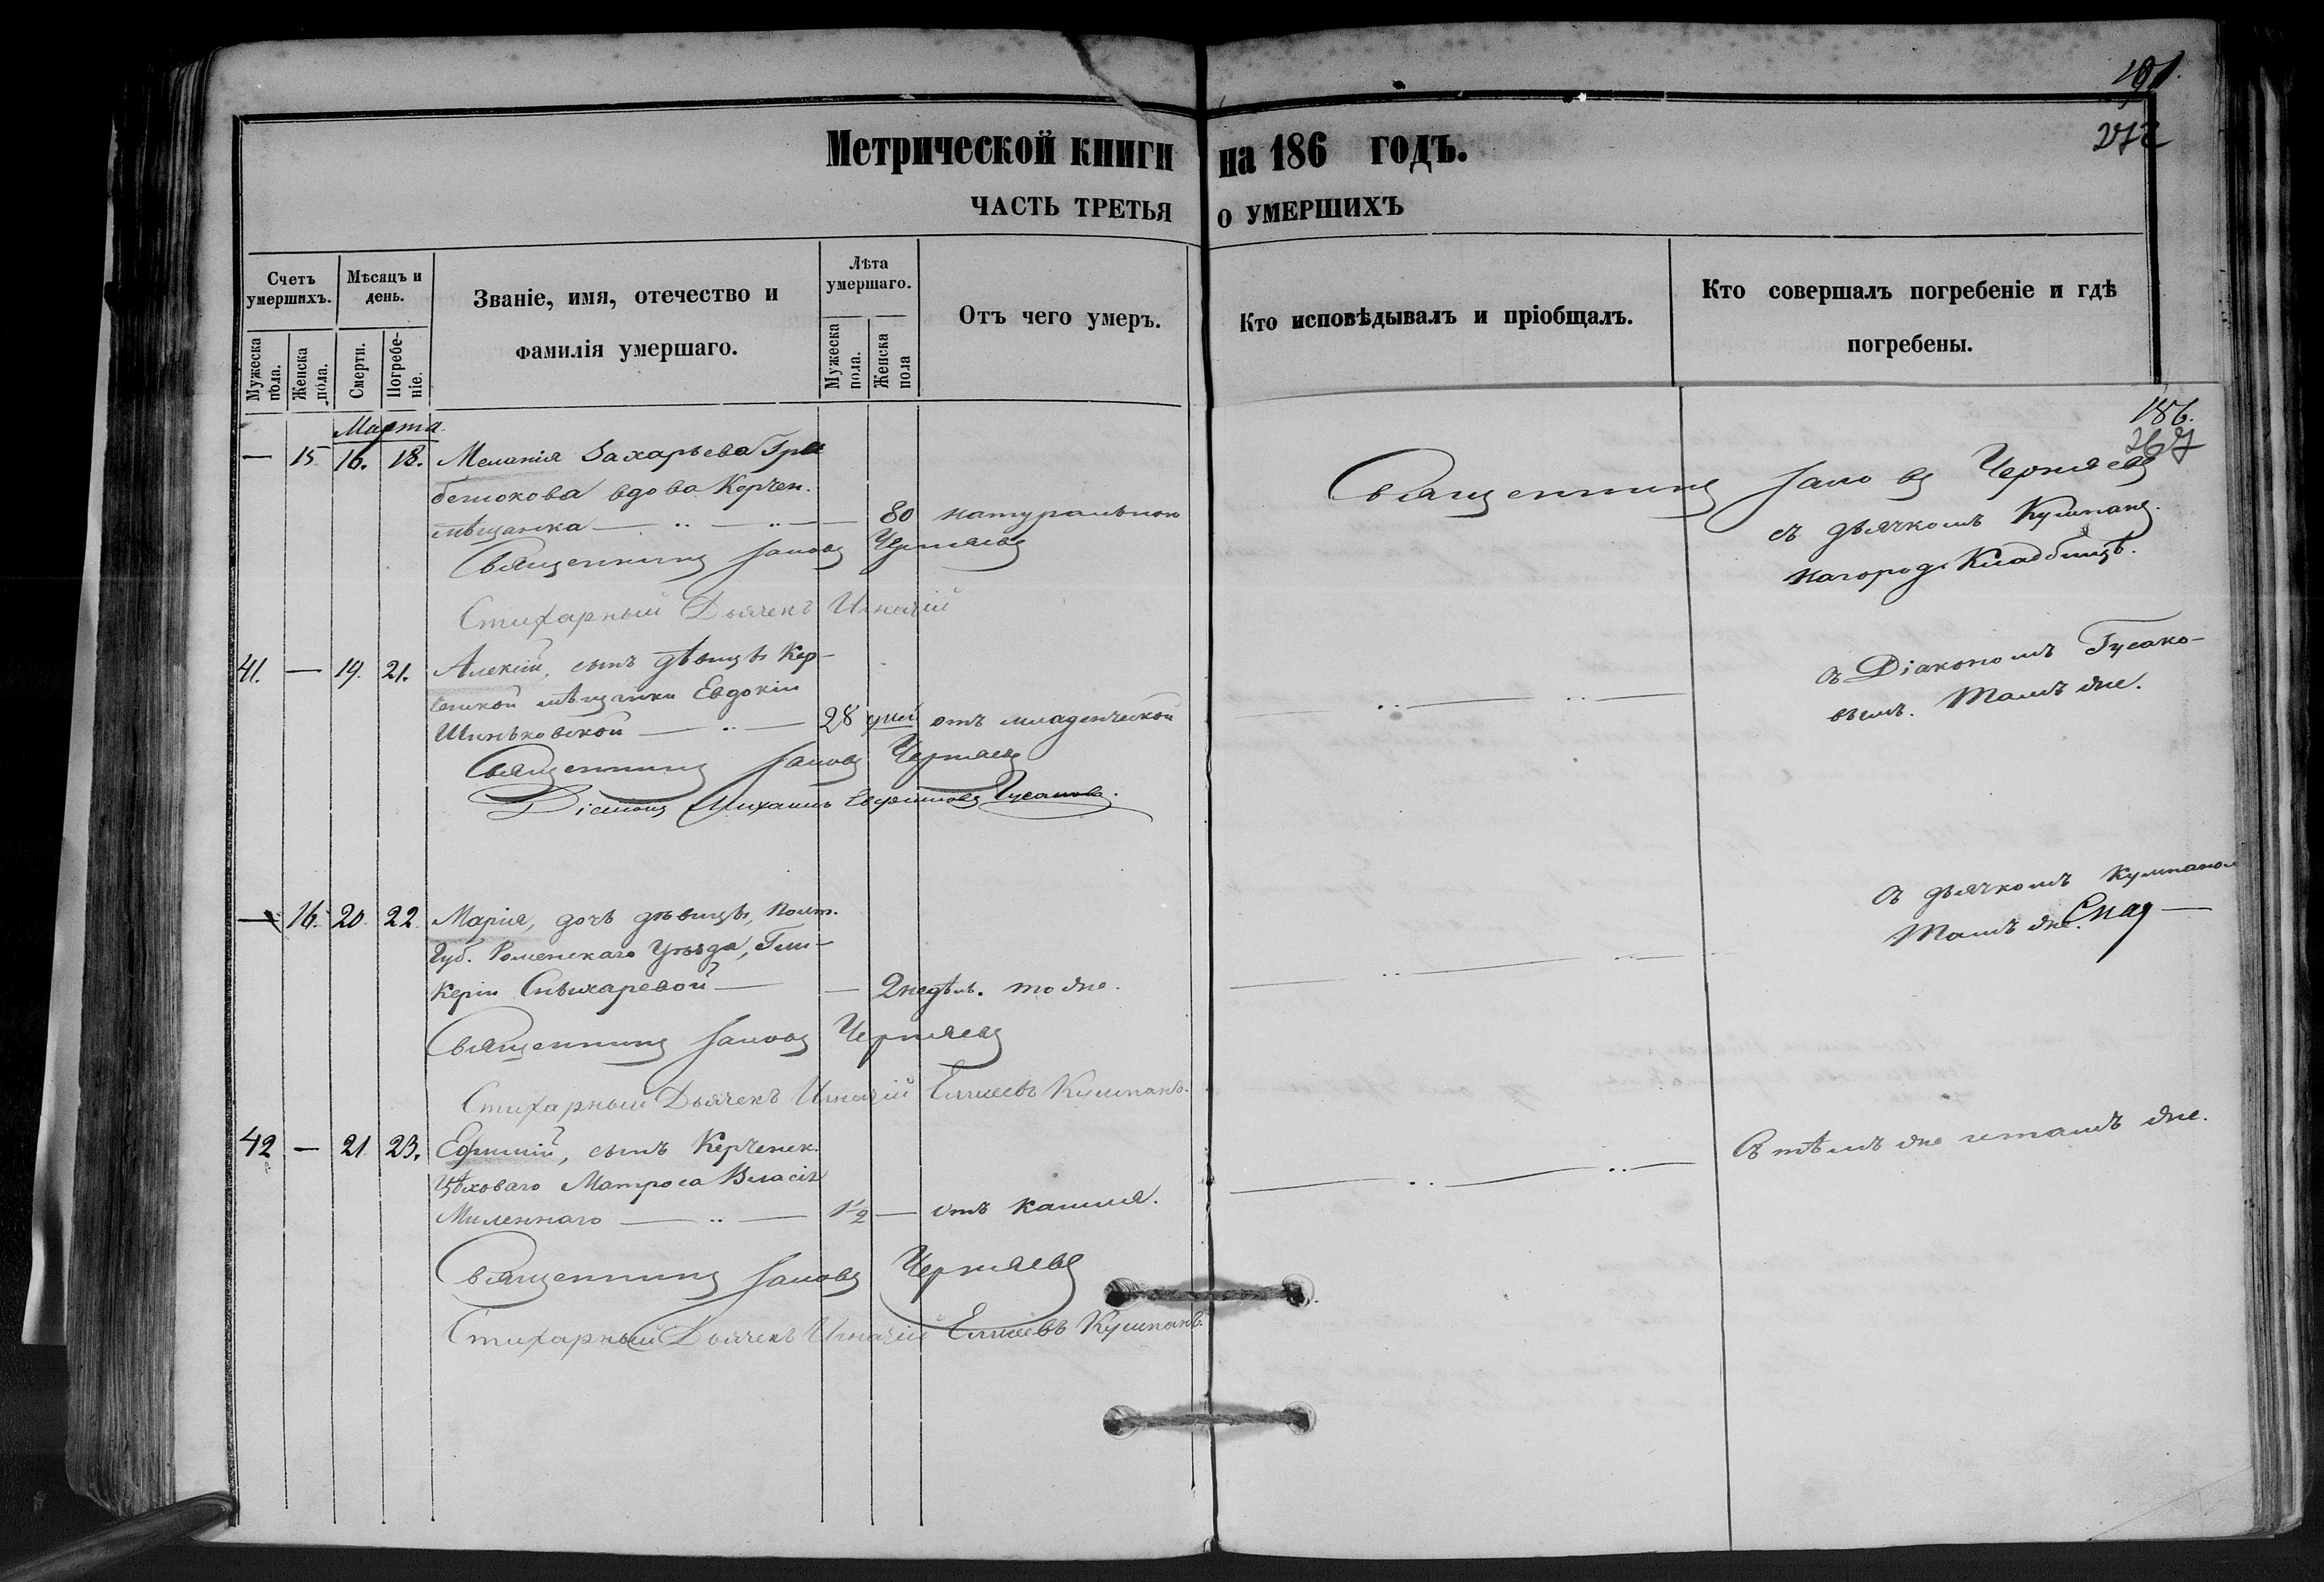 Метрической книги на 186 годъ.
ЧАСТЬ ТРЕТЬЯ О УМЕРШИХЪ
Счетъ умершихъ.
Мѣсяцъ и день.
Званіе, имя, отечество и фамилія умершаго.
Лѣта умершаго.
Отъ чего умеръ.
Кто исповѣдывалъ и пріобщалъ.
Кто совершалъ погребеніе и гдѣ погребены.
Мужеска пола.
Женска пола.
Смерти.
Погребеніе.
Мужеска пола.
Женска пола
186.
Марта
— 15 16. 18. Меланія Захарьева Гре
бенюкова вдова Керчен.
мѣщанка — 80 натуральною
Священникъ Іаковъ Черняевъ
съ дьячкомъ Кумпанъ.
на город. Кладбищѣ.
Священникъ Іаковъ Черняевъ
Стихарный Дьячекъ Игнатій
41. — 19. 21. Алексій, сынъ дѣвицы Кер-
ченской мѣщанки Евдокіи
Шиньковской — 28 дней отъ младенческой
съ Діакономъ Гусако-
вымъ. Тамъ же.
Священникъ Іаковъ Черняевъ
Діаконъ Михаилъ Гусаковъ.
— 16. 20. 22. Марія, дочь дѣвицы, Полт.
Губ. Роменскаго Уѣзда, Гли-
керіи — 2 недѣл. то же.
съ дьячкомъ Кумпаном
Тамъ же.
Священникъ Іаковъ Черняевъ
Стихарный Дьячекъ Игнатій Елисеевъ Кумпанъ.
42 — 21 23. Ефимій, сынъ Керченск.
Цѣховаго Матроса Власія
Миленнаго — 1/2 — отъ кашля.
Съ тѣмъ же и тамъ же.
Священникъ Іаковъ Черняевъ
Стихарный Дьячекъ Игнатій Елисеевъ Кумпанъ.